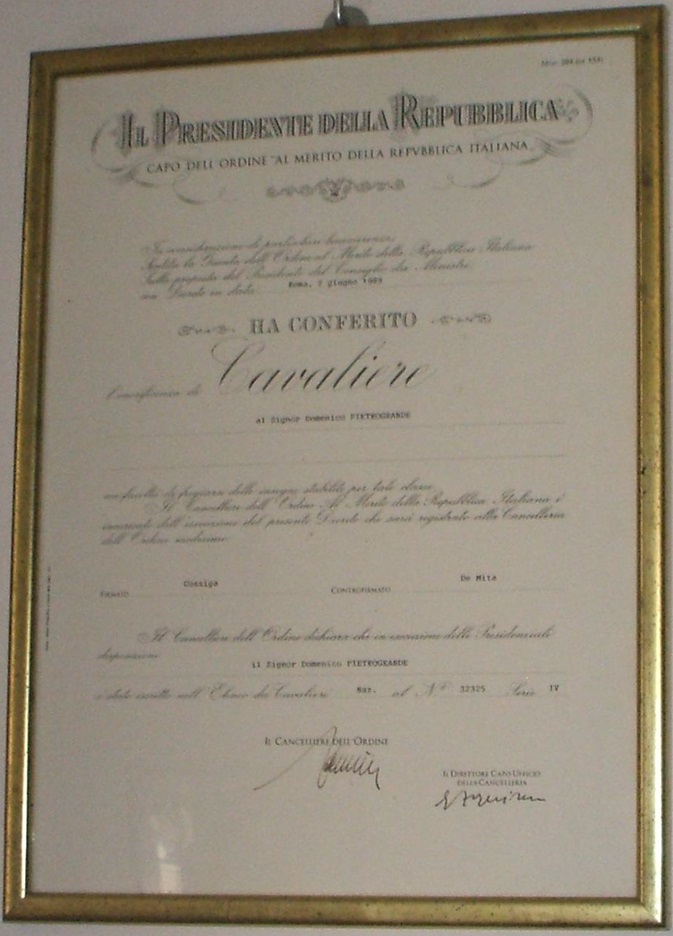 IL PRESIDENTE DELLA REPUBBLICA
CAPO DELL'ORDINE "AL MERITO DELLA REPVBBLICA ITALIANA"
In considerazione di particolari benemerenze;
Sentita la Giunta dell'Ordine al Merito della Repubblica Italiana
Sulla proposta del Presidente del Consiglio dei Ministri;
con Decreto in data Roma, 2 giugno 1989
HA CONFERITO
l'onorificenza di Cavaliere
al Signor Domenico PIETROGRANDE
con facoltà di fregiarsi delle insegne stabilite per tale classe.
Il Cancelliere dell'Ordine Al Merito della Repubblica Italiana è
incaricato dell'esecuzione del presente Decreto che sarà registrato alla Cancelleria
dell'Ordine medesimo.
FIRMATO Cossiga CONTROFIRMATO De Mita
Il Cancelliere dell'Ordine dichiara che in esecuzione delle Presidenziali
disposizioni
il Signor Domenico PIETROGRANDE
è stato iscritto nell'Elenco dei Cavalieri Naz. al N° 32325 Serie IV
IL CANCELLIERE DELL'ORDINE
IL DIRETTORE CAPO UFFICIO
DELLA CANCELLERIA